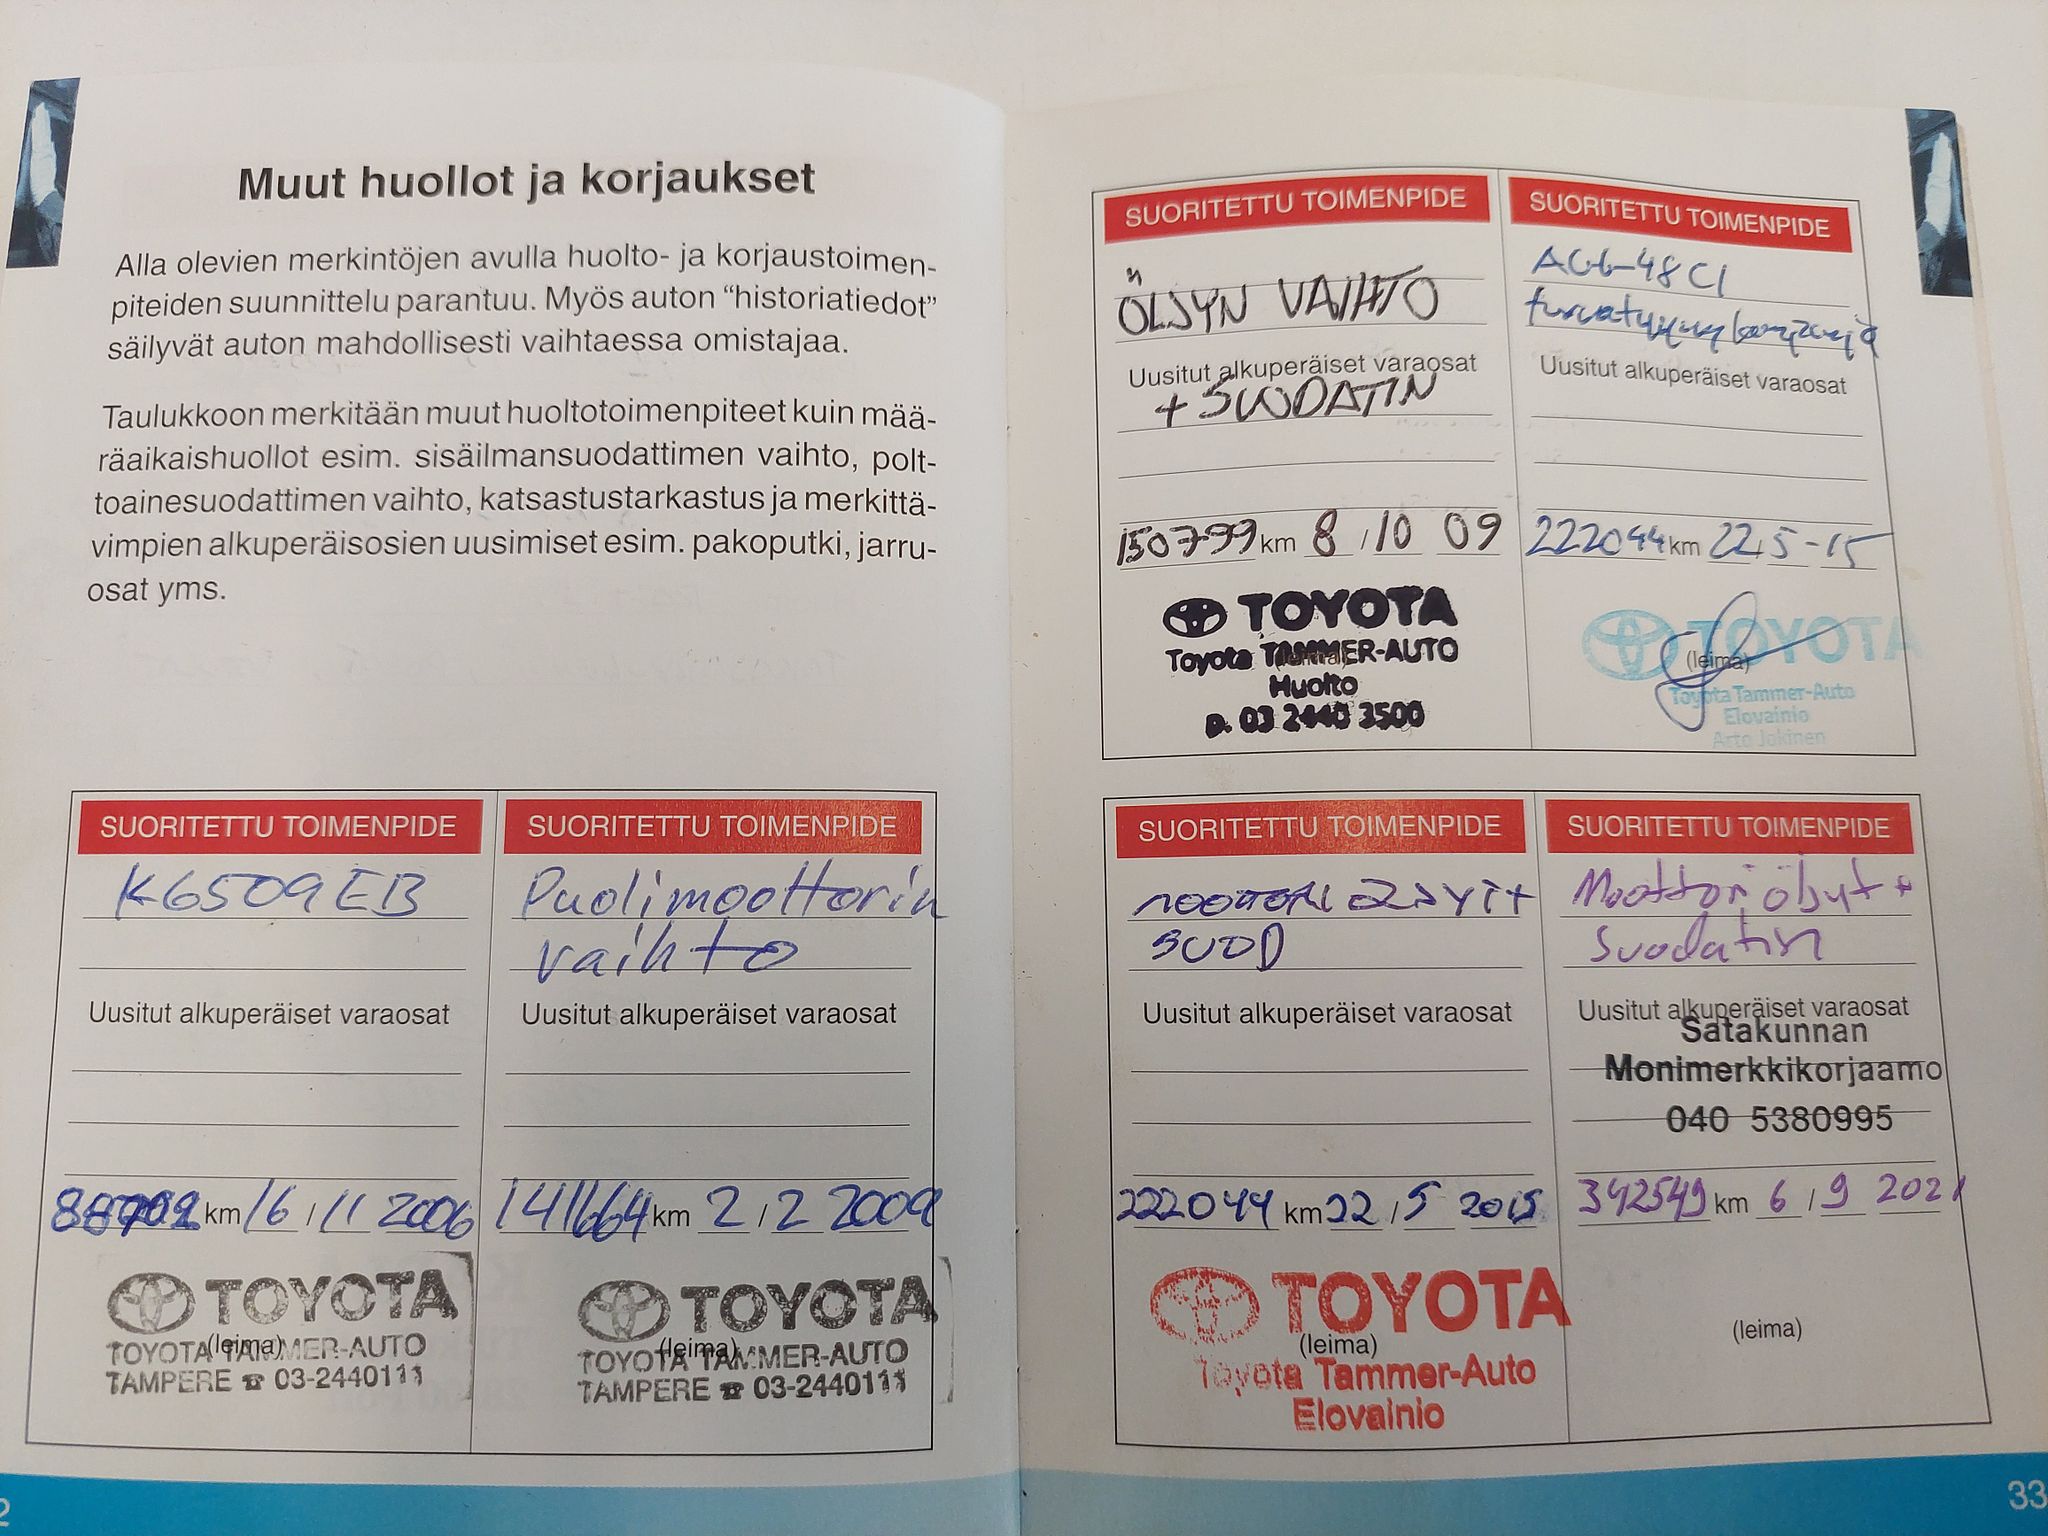 Muut huollot ja korjaukset
Alla olevien merkintöjen avulla huolto- ja korjaustoimen-
piteiden suunnittelu parantuu. Myös auton “historiatiedot”
säilyvät auton mahdollisesti vaihtaessa omistajaa.
Taulukkoon merkitään muut huoltotoimenpiteet kuin mää-
räaikaishuollot esim. sisäilmansuodattimen vaihto, polt-
toainesuodattimen vaihto, katsastustarkastus ja merkittä-
vimpien alkuperäisosien uusimiset esim. pakoputki, jarru-
osat yms.
SUORITETTU TOIMENPIDE
K6509EB
Uusitut alkuperäiset varaosat
km 16 / 11 2006
TOYOTA
(leima)
TOYOTA TAMMER-AUTO
TAMPERE ☎ 03-2440111
SUORITETTU TOIMENPIDE
Puolimoottorin
vaihto
Uusitut alkuperäiset varaosat
141664 km 2 / 2 2009
TOYOTA
(leima)
TOYOTA TAMMER-AUTO
TAMPERE ☎ 03-2440111
SUORITETTU TOIMENPIDE
ÖLJYN VAIHTO
Uusitut alkuperäiset varaosat
+ SUODATIN
150799 km 8 / 10 09
TOYOTA
Toyota TAMMER-AUTO
Huolto
p. 03 2440 3500
SUORITETTU TOIMENPIDE
Uusitut alkuperäiset varaosat
222044 km 22/5-15
TOYOTA
(leima)
Toyota Tammer-Auto
Elovainio
Arto Jokinen
SUORITETTU TOIMENPIDE
SUOD
Uusitut alkuperäiset varaosat
222044 km 22 / 5 2015
TOYOTA
(leima)
Toyota Tammer-Auto
Elovainio
SUORITETTU TOIMENPIDE
Moottoriöljyt +
Suodatin
Uusitut alkuperäiset varaosat
Satakunnan
Monimerkkikorjaamo
040 5380995
342549 km 6 / 9 2021
(leima)
2
33